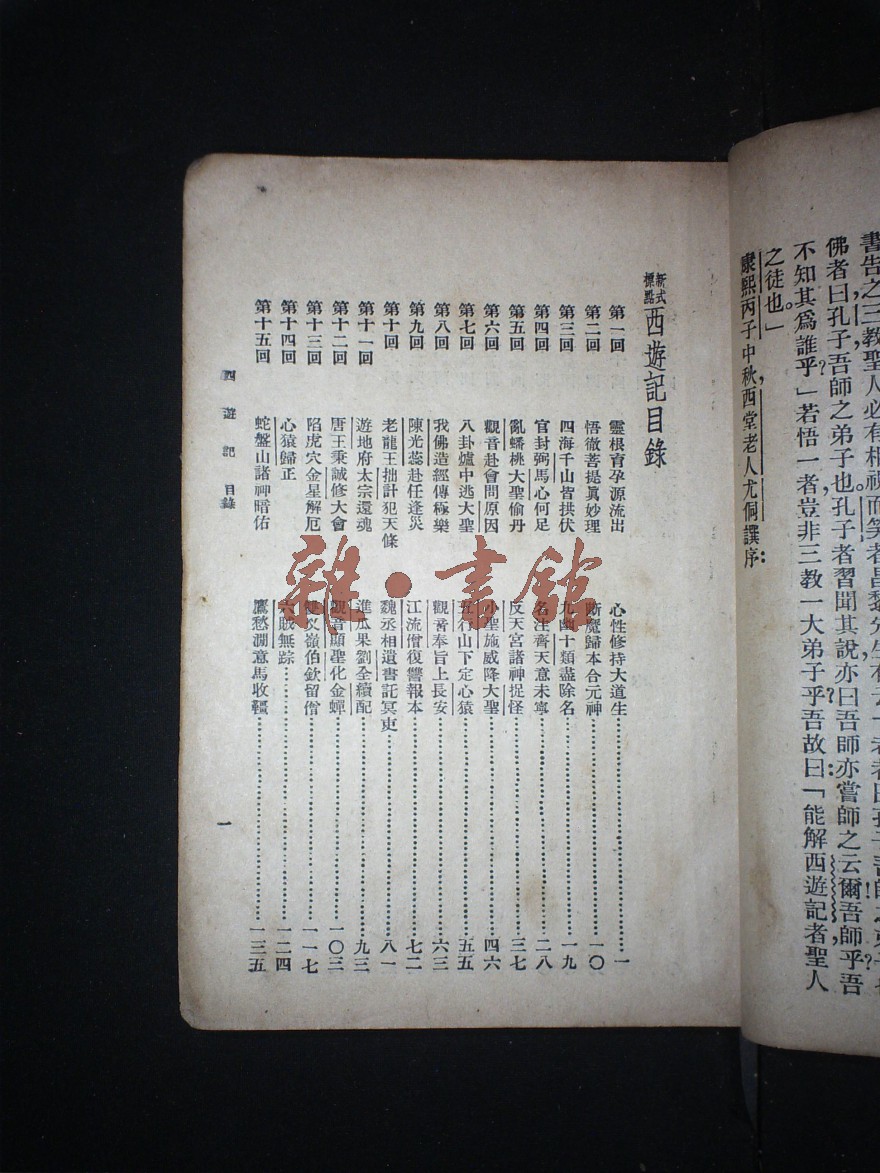 書告之三教聖人必有相視而笑者
佛者曰孔子吾師之弟子也孔子者習聞其說亦曰吾師亦嘗師之云爾吾師乎吾
不知其爲誰乎?」若悟一者豈非三教一大弟子乎?吾故曰:「能解西遊記者聖人
之徒也。」
康熙丙子中秋,西堂老人尤侗譔序:
新式標點西遊記目錄
第一回 靈根育孕源流出 心性修持大道生 一
第二回 悟徹菩提眞妙理 斷魔歸本合元神 一〇
第三回 四海千山皆拱伏 九幽十類盡除名 一九
第四回 官封弼馬心何足 名注齊天意未寧 二八
第五回 亂蟠桃大聖偷丹 反天宮諸神捉怪 三七
第六回 觀音赴會問原因 小聖施威降大聖 四六
第七回 八卦爐中逃大聖 五行山下定心猿 五五
第八回 我佛造經傳極樂 觀音奉旨上長安 六三
第九回 陳光蕊赴任逢災 江流僧復讐報本 七二
第十回 老龍王拙計犯天條 魏丞相遺書託冥吏 八一
第十一回 遊地府太宗還魂 進瓜果劉全續配 九三
第十二回 唐王秉誠修大會 觀音顯聖化金蟬 一〇三
第十三回 陷虎穴金星解厄 雙叉嶺伯欽留僧 一一七
第十四回 心猿歸正 六賊無踪 一二四
第十五回 蛇盤山諸神暗佑 鷹愁澗意馬收韁 一三五
西遊記 目錄
一
雜·書館